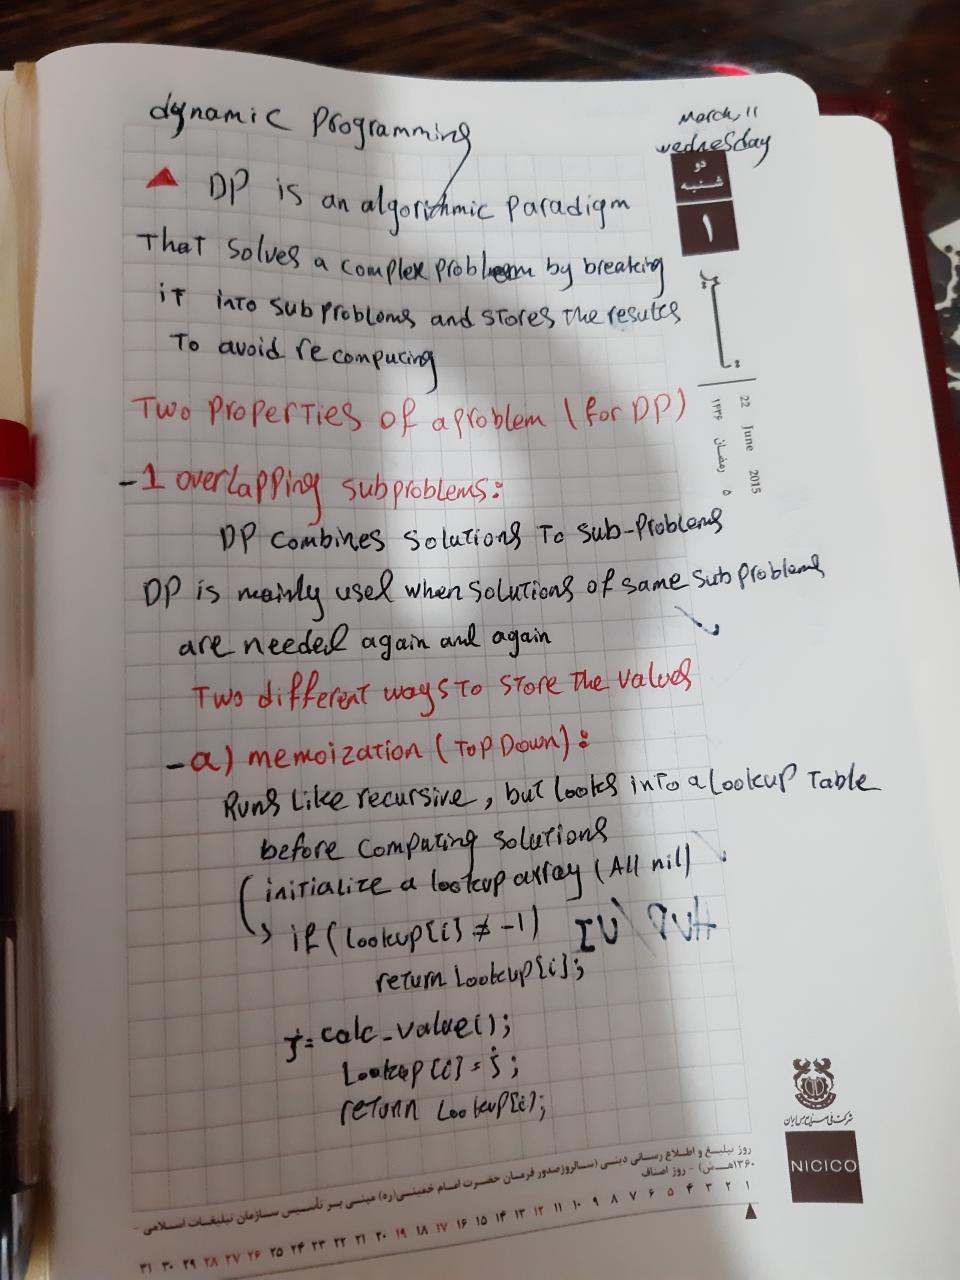 dynamic Programming
March, 11
wednesday
DP is an algorithmic paradigm
That solves a complex problem by breaking
it into subproblems and stores the results
To avoid recomputing
Two properties of a problem (for DP)
-1 overlapping subproblems:
DP combines solutions To sub-problems
DP is mainly used when solutions of same subproblems
are needed again and again
Two different ways To store the values
-a) memoization (Top Down):
Runs Like recursive, but looks into a lookup Table
before computing solutions
(initialize a lookup array (All nil)
if (lookup[i] ≠ -1)
return lookup[i];
j = calc_value();
Lookup[i] = j;
return Lookup[i];
دو
شنبه
۱
تیر
22 June 2015
۵ رمضان ۱۴۳۶
شرکت ملی صنایع مس ایران
NICICO
روز تبلیغ و اطلاع رسانی دینی (سالروز صدور فرمان حضرت امام خمینی(ره) مبنی بر تأسیس سازمان تبلیغات اسلامی -
۱۳۶۰هـ.ش) - روز اصناف
۱ ۲ ۳ ۴ ۵ ۶ ۷ ۸ ۹ ۱۰ ۱۱ ۱۲ ۱۳ ۱۴ ۱۵ ۱۶ ۱۷ ۱۸ ۱۹ ۲۰ ۲۱ ۲۲ ۲۳ ۲۴ ۲۵ ۲۶ ۲۷ ۲۸ ۲۹ ۳۰ ۳۱